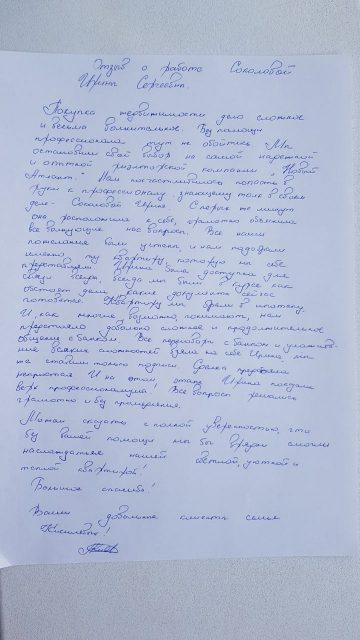 Отзыв о работе Соколовой
Ирины Сергеевны.
Покупка недвижимости дело сложное
и весьма волнительное. Без помощи
профессионала тут не обойтись. Мы
остановили свой выбор на самой надежной
и опытной риэлторской компании "Новый
Атлант". Нам посчастливилось попасть в
руки к профессионалу, знающему толк в своем
деле - Соколовой Ирине. С первых же минут
она расположила к себе, грамотно объяснила
все волнующие нас вопросы. Все наши
пожелания были учтены и нам подобрали
именно ту квартиру, которую мы себе
представляли. Ирина была доступна для
связи всегда, всегда мы были в курсе как
обстоят дела, какие документы сейчас
готовятся. Квартиру мы брали в ипотеку.
И, как многие, возможно, понимают, нам
предстояло довольно сложное и продолжительное
общение с банком. Все переговоры с банком и улажива-
ние всяких сложностей взяла на себя Ирина, мы
же ставили только подписи. Сделка
И на этом этапе Ирина показала
верх профессионализма! Все вопросы решались
грамотно и без промедления.
Можем сказать с полной уверенностью, что
без вашей помощи мы бы врядли смогли
наслаждаться нашей светлой, уютной и
теплой квартирой!
Большое спасибо!
Ваши довольные клиенты семья